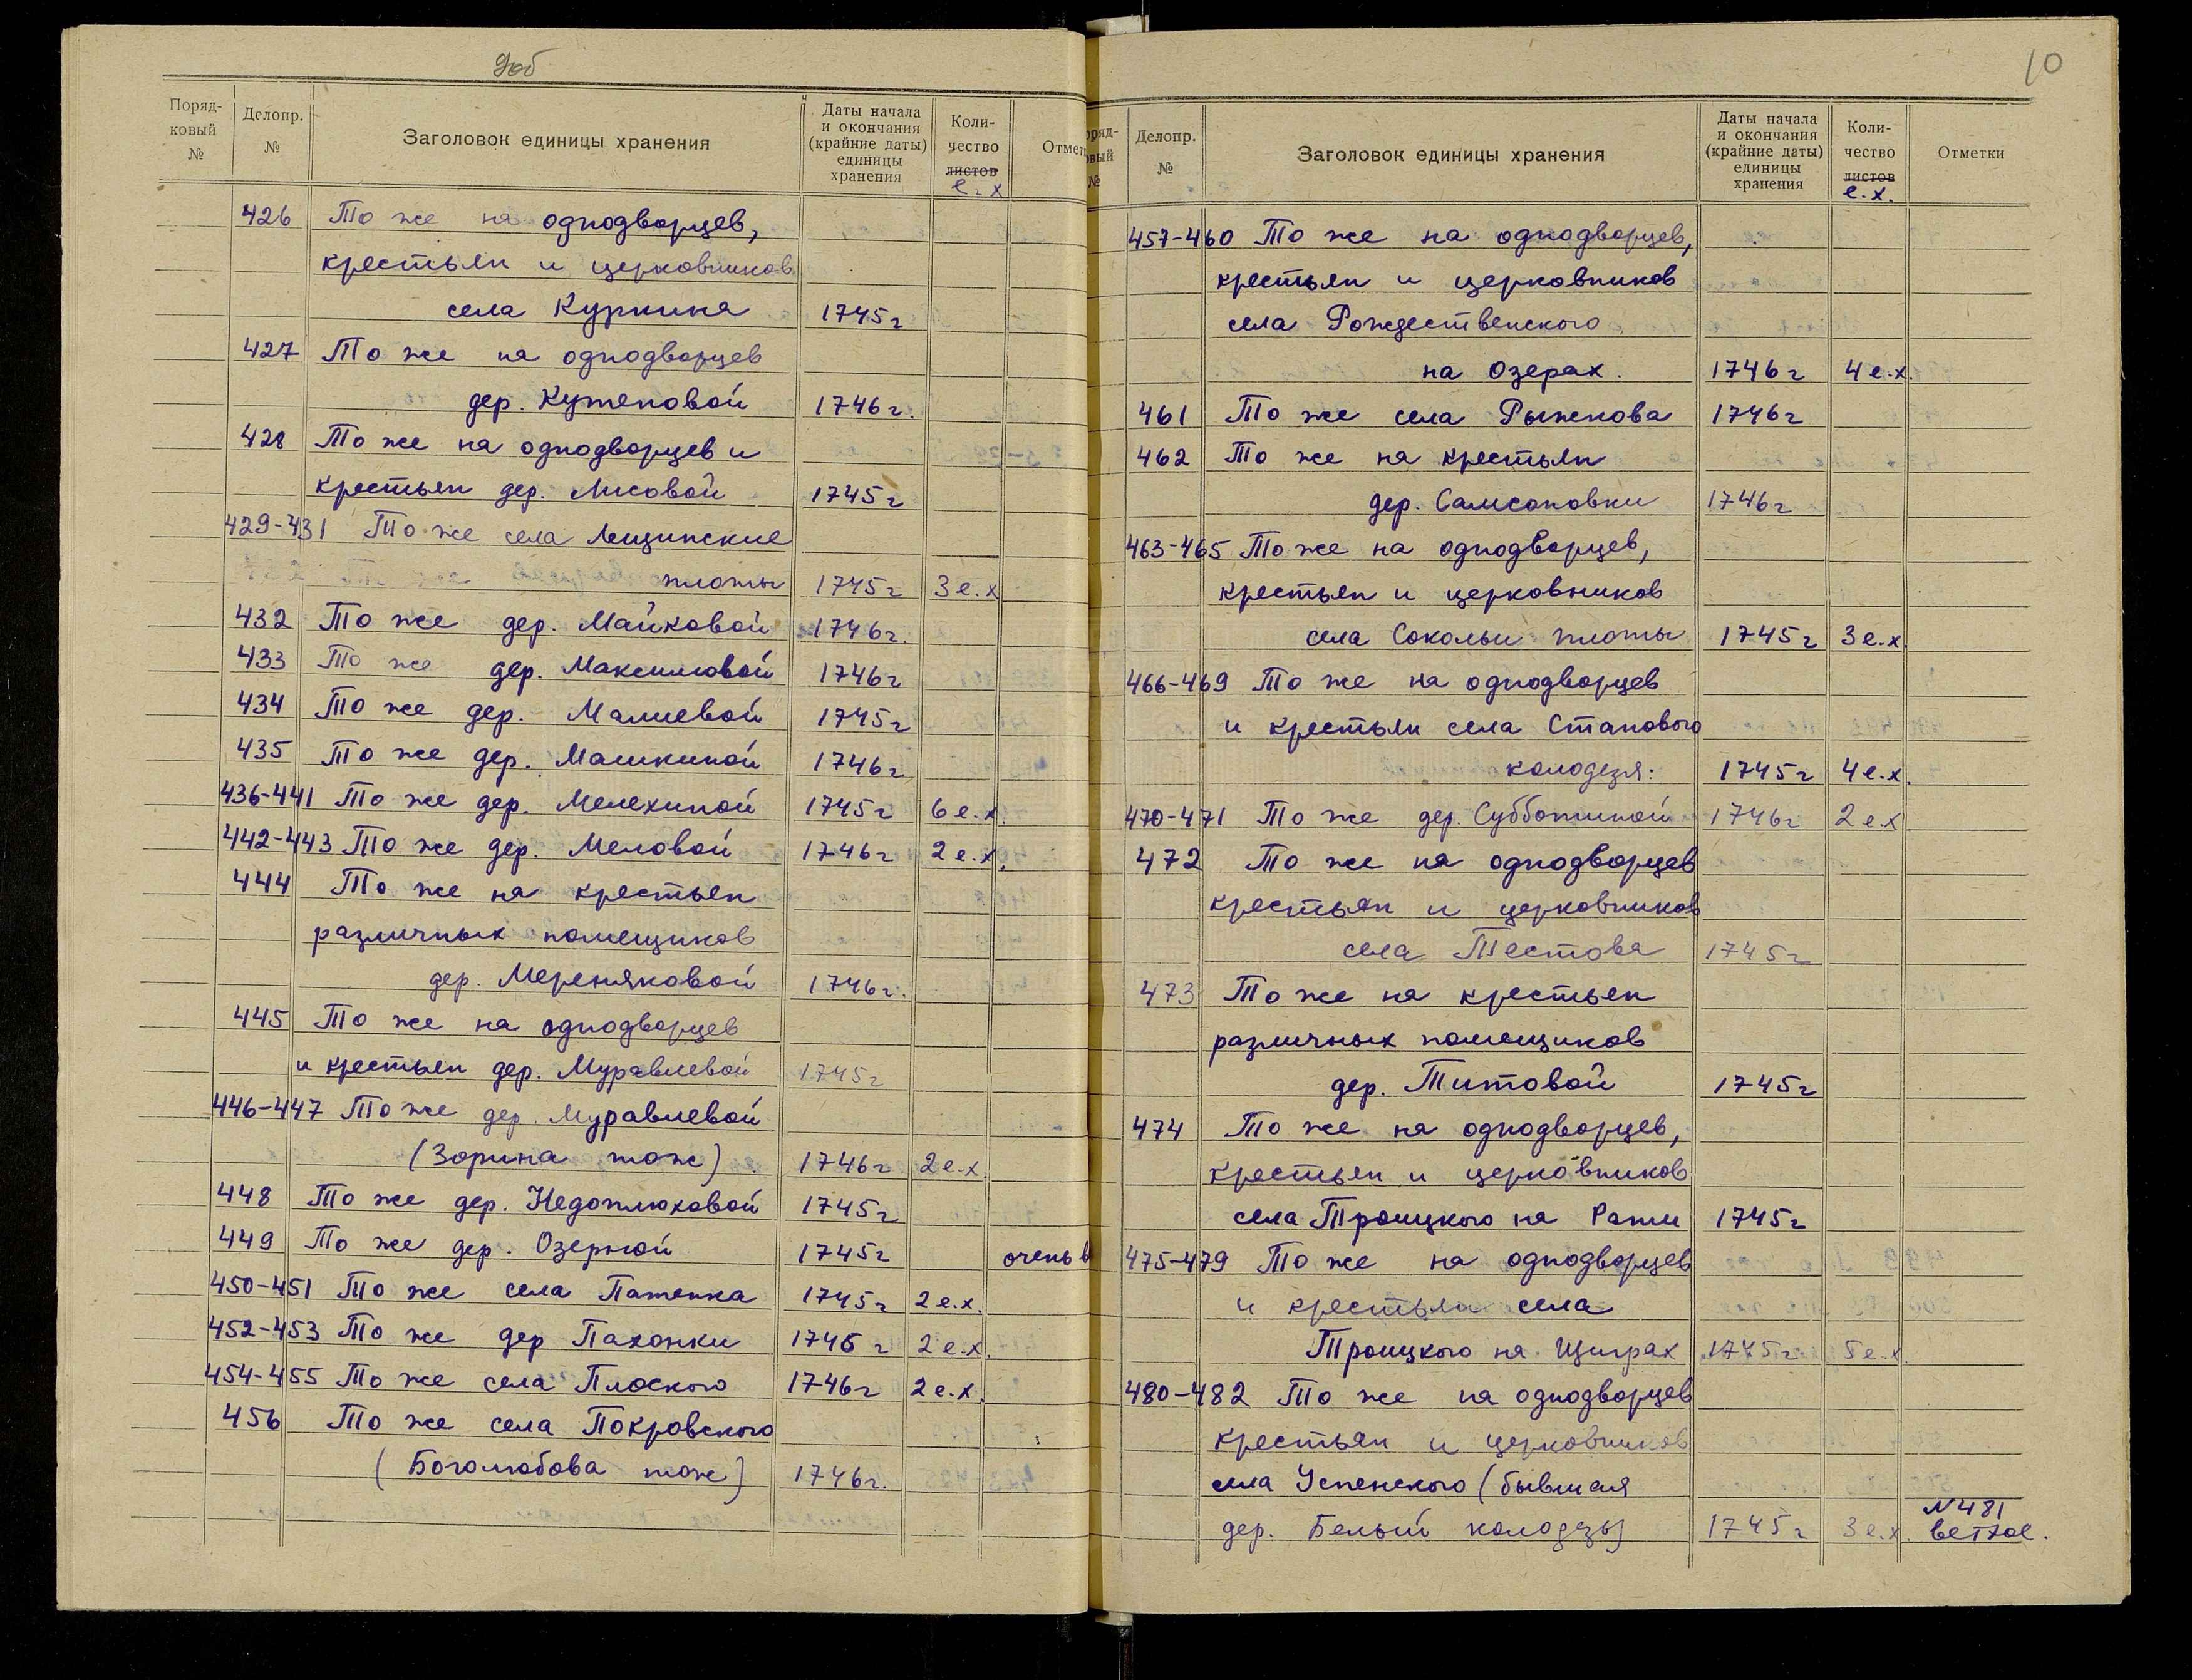 9об
Поряд-
ковый
№
Делопр.
№
Заголовок единицы хранения
Даты начала
и окончания
(крайние даты)
единицы
хранения
Коли-
чество
листов
е.х
Отмет
426 То же на однодворцев,
крестьян и церковников
села Куркина 1745 г
427 То же на однодворцев
дер. Кутеповой 1746 г.
428 То же на однодворцев и
крестьян дер. Лисовой 1745 г
429-431 То же села Лещинские
плоты 1745 г 3 е.х
432 То же дер. Майковой 1746 г.
433 То же дер. Максимовой 1746 г
434 То же дер. Малиевой 1745 г
435 То же дер. Машкиной 1746 г
436-441 То же дер. Мелехиной 1745 г 6 е.х.
442-443 То же дер. Меловой 1746 г 2 е.х.
444 То же на крестьян
различных помещиков
дер. Мерзляковой 1746 г.
445 То же на однодворцев
и крестьян дер. Муравлевой 1745 г
446-447 То же дер. Муравлевой
(Зорина тож) 1746 г 2 е.х
448 То же дер. Недоплюховой 1745 г
449 То же дер. Озерной 1745 г очень в
450-451 То же села Патепка 1745 г 2 е.х.
452-453 То же дер Пахонки 1746 г 2 е.х.
454-455 То же села Плоского 1746 г 2 е.х.
456 То же села Покровского
(Боголюбова тож) 1746 г.
10
ряд-
вый
№
Делопр.
№
Заголовок единицы хранения
Даты начала
и окончания
(крайние даты)
единицы
хранения
Коли-
чество
листов
е.х.
Отметки
457-460 То же на однодворцев,
крестьян и церковников
села Рождественского
на Озерах. 1746 г 4 е.х.
461 То же села Рыжкова 1746 г
462 То же на крестьян
дер. Самсоновки 1746 г
463-465 То же на однодворцев,
крестьян и церковников
села Сокольи плоты 1745 г 3 е.х.
466-469 То же на однодворцев
и крестьян села Станового
колодезя: 1745 г 4 е.х.
470-471 То же дер. Субботиной 1746 г 2 е.х
472 То же на однодворцев
крестьян и церковников
села Тестова 1745 г
473 То же на крестьян
различных помещиков
дер. Титовой 1745 г
474 То же на однодворцев,
крестьян и церковников
села Троицкого на Рати 1745 г
475-479 То же на однодворцев
и крестьян села
Троицкого на Щиграх 1745 г 5 е.х.
480-482 То же на однодворцев
крестьян и церковников
села Успенского (бывшая
дер. Белый колодезь) 1745 г 3 е.х.
N 481
ветхое.